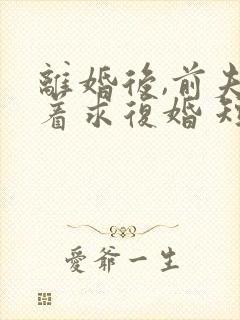 離婚後,前夫
着求復婚 短
愛爺一生